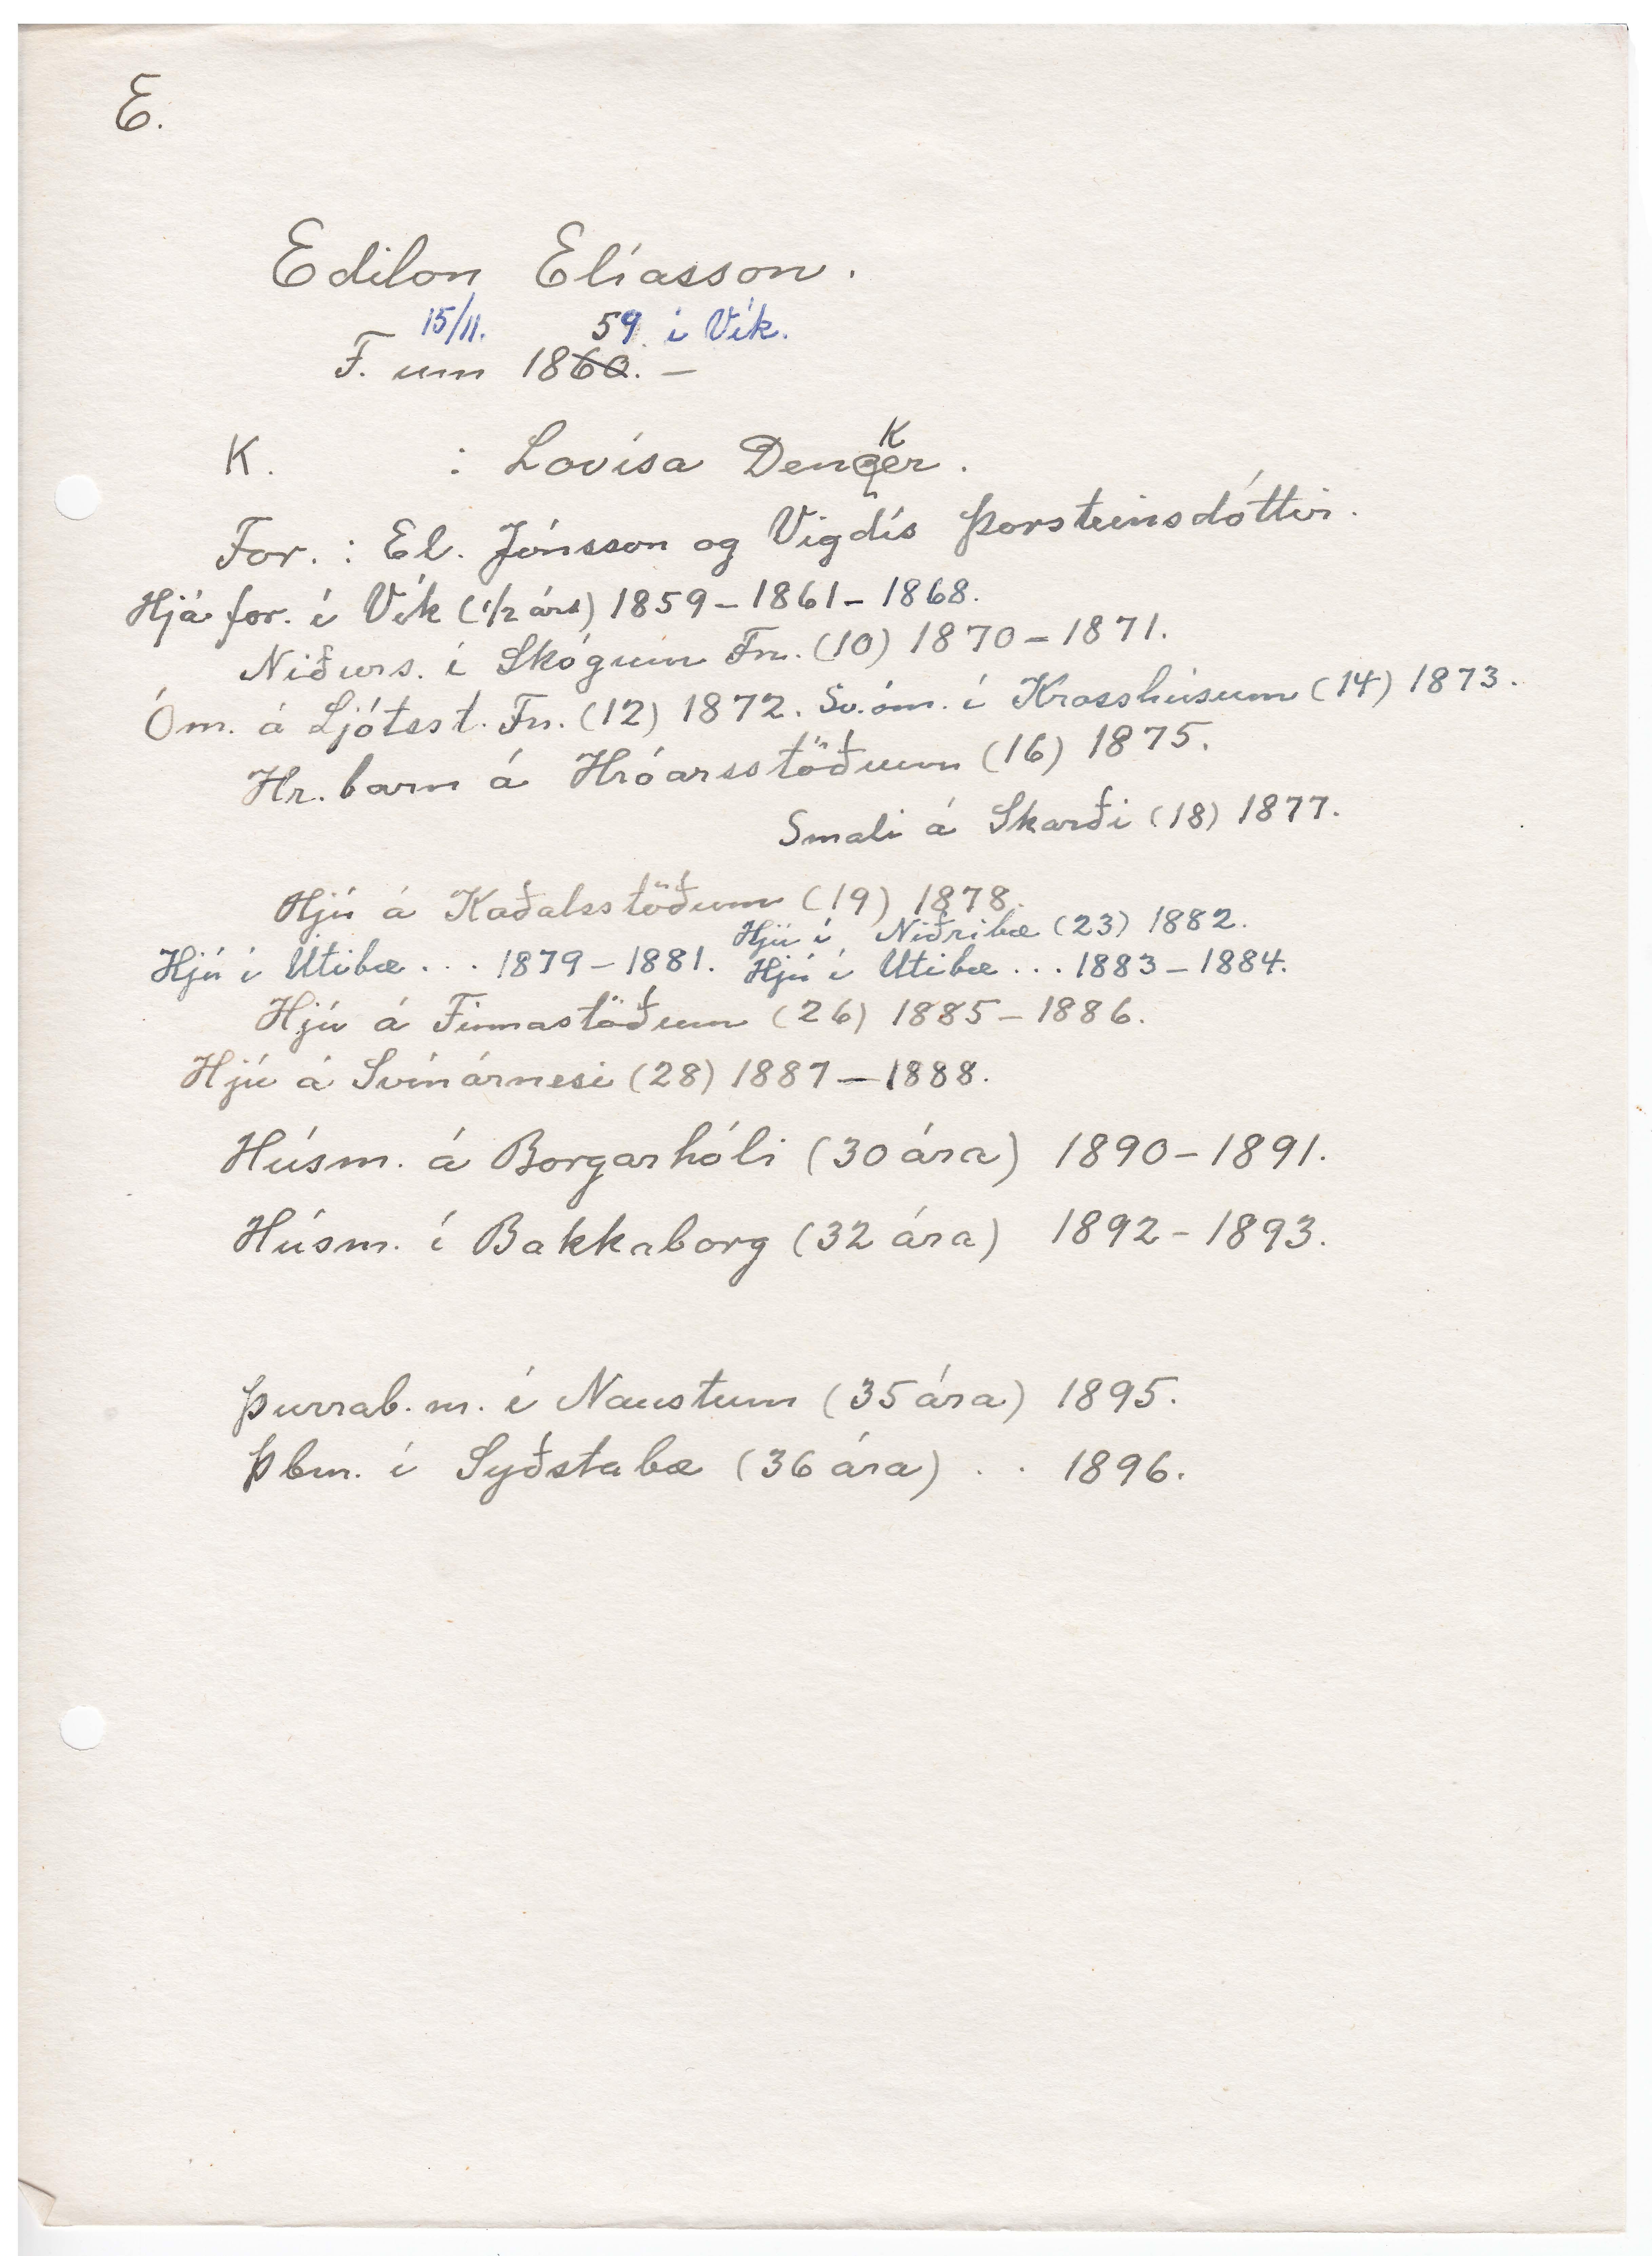 E.
Edilon Elíasson.
15/11. 59. í Vík.
F. um 1860. –
K
K. : Lovísa Denger.
For. : El. Jónsson og Vigdís Þorsteinsdóttir.
Hjá for. í Vík (1/2 árs) 1859 – 1861 – 1868.
Niðurs. í Skógum Fn. (10) 1870 – 1871.
Óm. á Ljótsst. Fn. (12) 1872. Sv.óm. í Krosshúsum (14) 1873.
Hr. barn á Hróarsstöðum (16) 1875.
Smali á Skarði (18) 1877.
Hjú á Kaðalsstöðum (19) 1878.
Hjú í Niðribæ (23) 1882.
Hjú í Utibæ . . . 1879 – 1881. Hjú í Utibæ . . . 1883 – 1884.
Hjú á Finnastöðum (26) 1885 – 1886.
Hjú á Svínárnesi (28) 1887 – 1888.
Húsm. á Borgarhóli (30 ára) 1890 – 1891.
Húsm. í Bakkaborg (32 ára) 1892 – 1893.
Þurrab. m. í Naustum (35 ára) 1895.
Þbm. í Syðstabæ (36 ára) . . 1896.